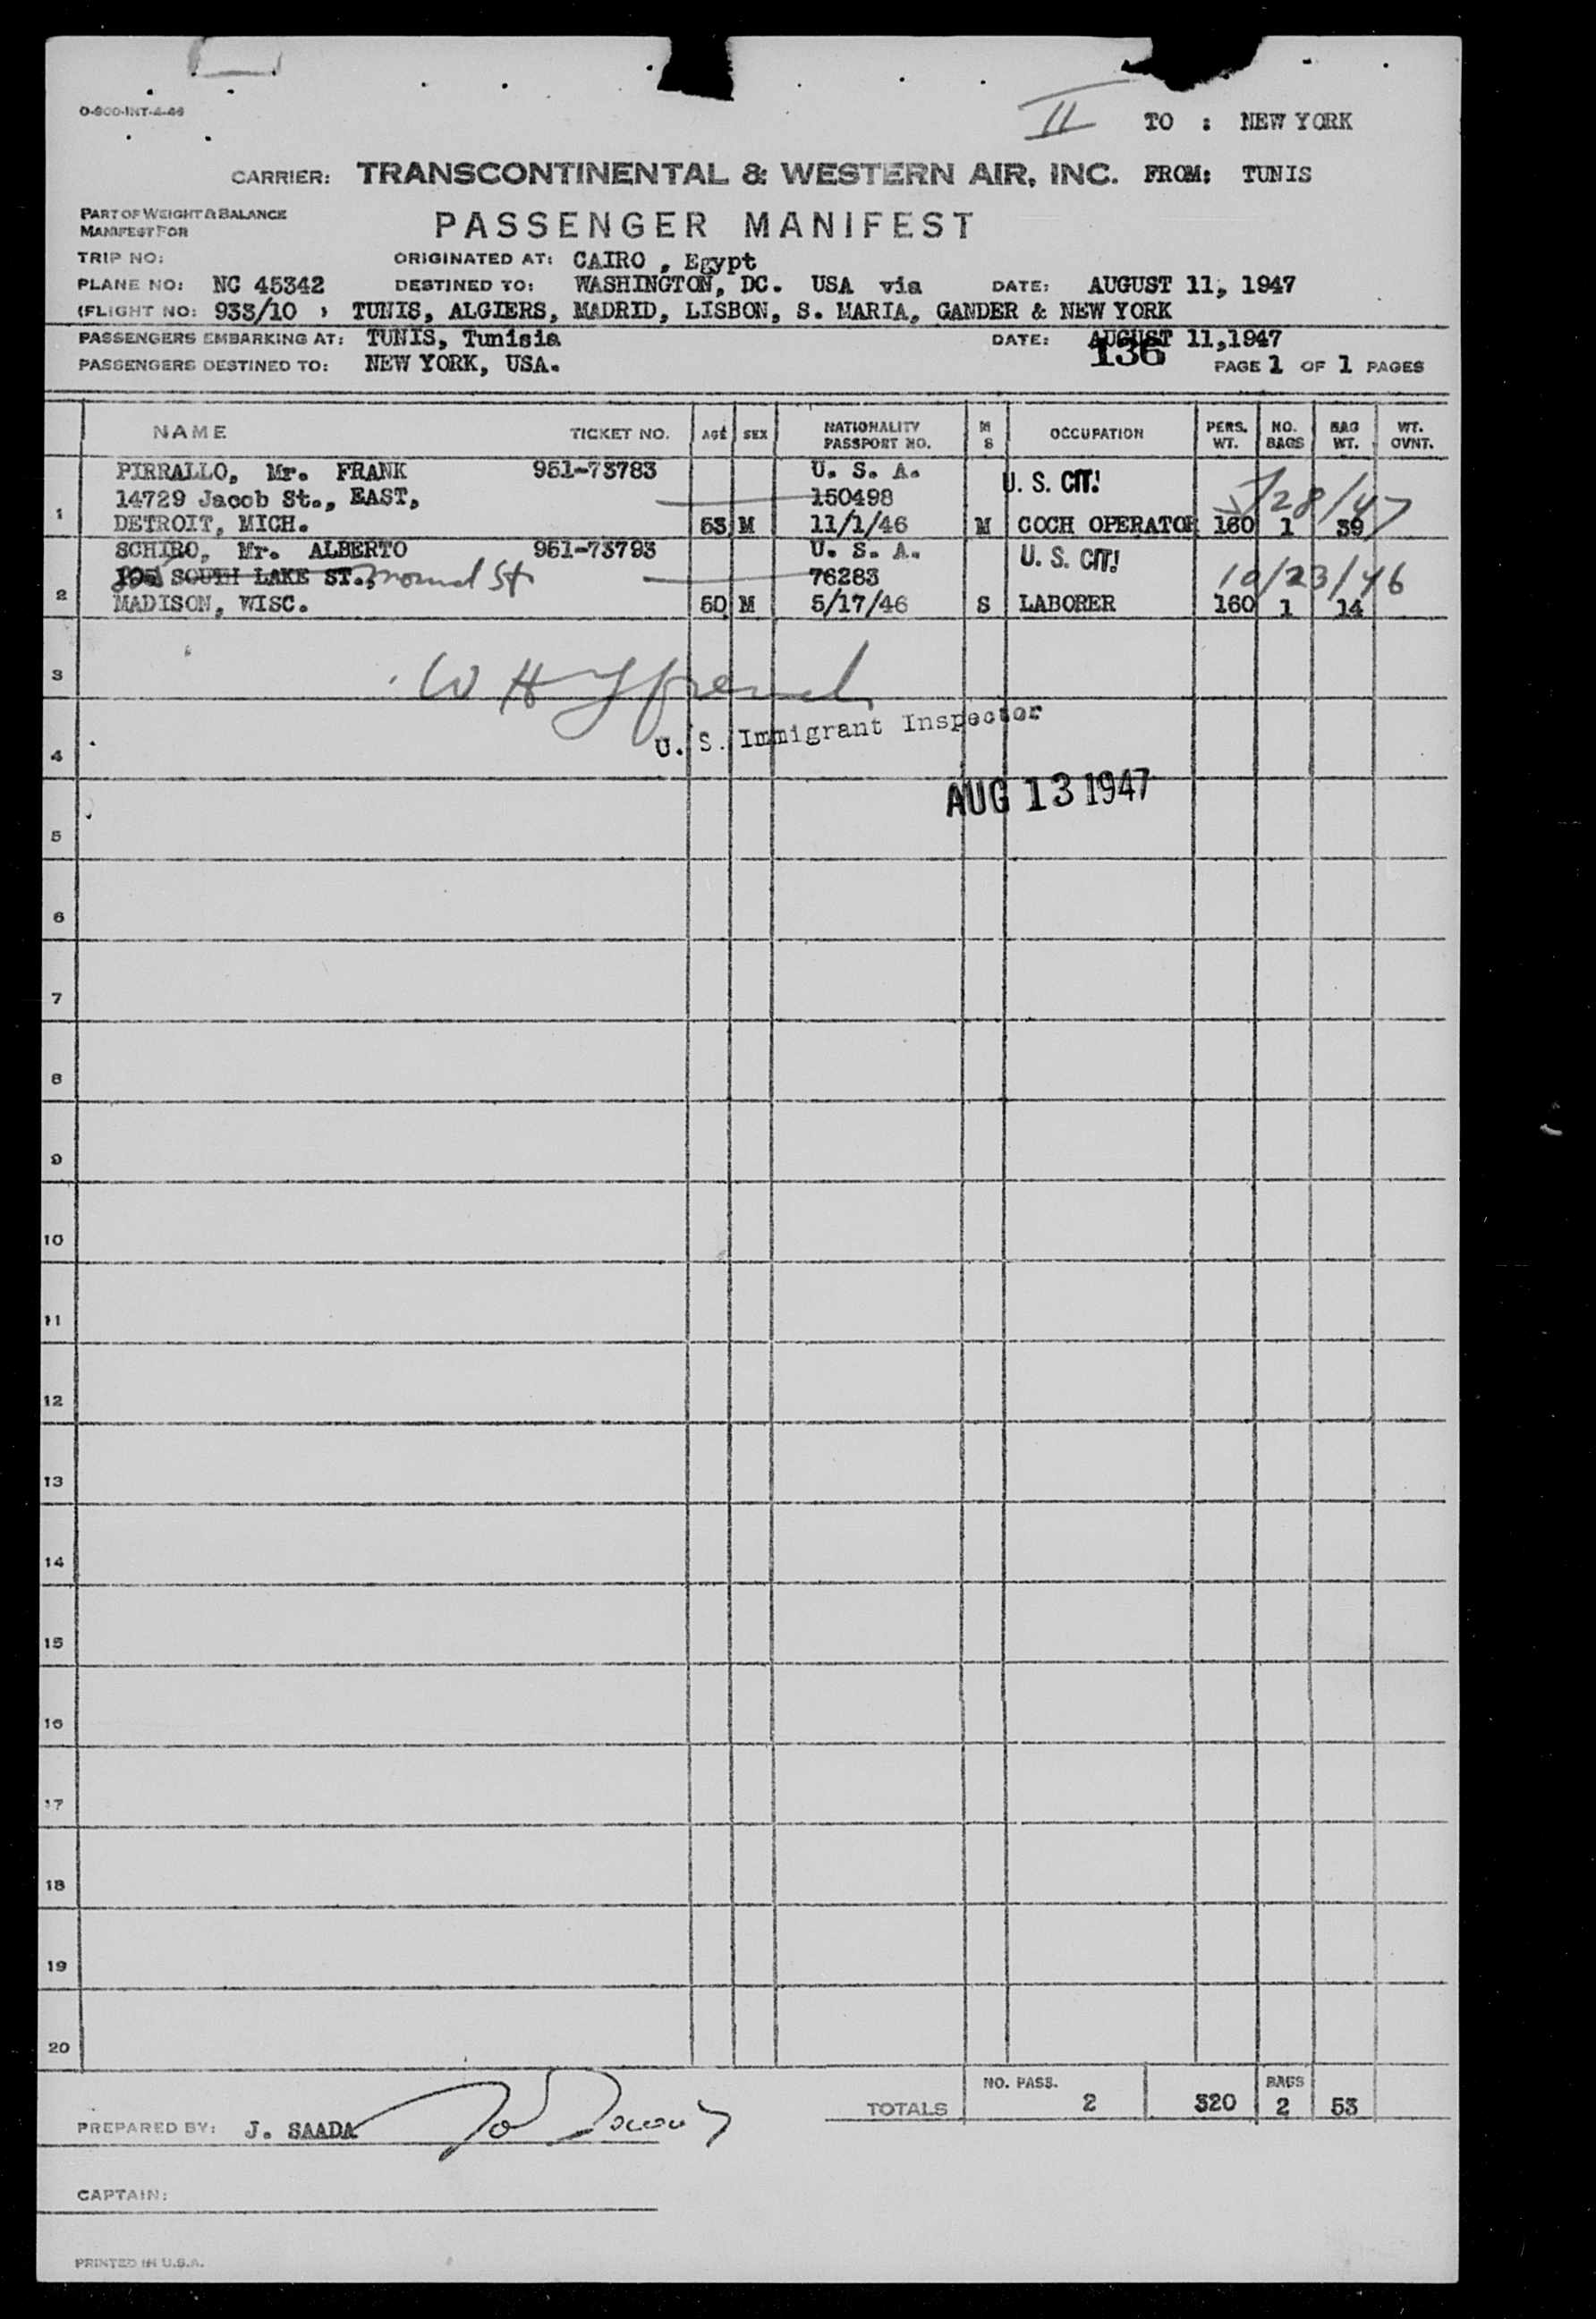 O-800-INT-4-46
II TO : NEW YORK
CARRIER: TRANSCONTINENTAL & WESTERN AIR, INC. FROM: TUNIS
PART OF WEIGHT & BALANCE
MANIFEST FOR
PASSENGER MANIFEST
TRIP NO: ORIGINATED AT: CAIRO , Egypt
PLANE NO: NC 45342 DESTINED TO: WASHINGTON, DC. USA via DATE: AUGUST 11, 1947
(FLIGHT NO: 933/10 , TUNIS, ALGIERS, MADRID, LISBON, S. MARIA, GANDER & NEW YORK
PASSENGERS EMBARKING AT: TUNIS, Tunisia DATE: AUGUST 11,1947
136
PASSENGERS DESTINED TO: NEW YORK, USA. PAGE 1 OF 1 PAGES
NAME TICKET NO. AGE SEX NATIONALITY PASSPORT NO. M S OCCUPATION PERS. WT. NO. BAGS BAG WT. WT. OVNT.
PIRRALLO, Mr. FRANK 951-73783 U. S. A.
14729 Jacob St., EAST, 150498 U. S. CIT! /28/47
1 DETROIT, MICH. 53 M 11/1/46 M COCH OPERATOR 160 1 39
SCHIRO, Mr. ALBERTO 951-73793 U. S. A. U. S. CIT!
SOUTH LAKE ST., St 76283 10/23/46
2 MADISON, WISC. 50 M 5/17/46 S LABORER 160 1 14
3
W H
U. S. Immigrant Inspector
4
AUG 13 1947
5
6
7
8
9
10
11
12
13
14
15
16
17
18
19
20
TOTALS NO. PASS. 2 320 BAGS 2 53
PREPARED BY: J. SAADA
CAPTAIN:
PRINTED IN U.S.A.